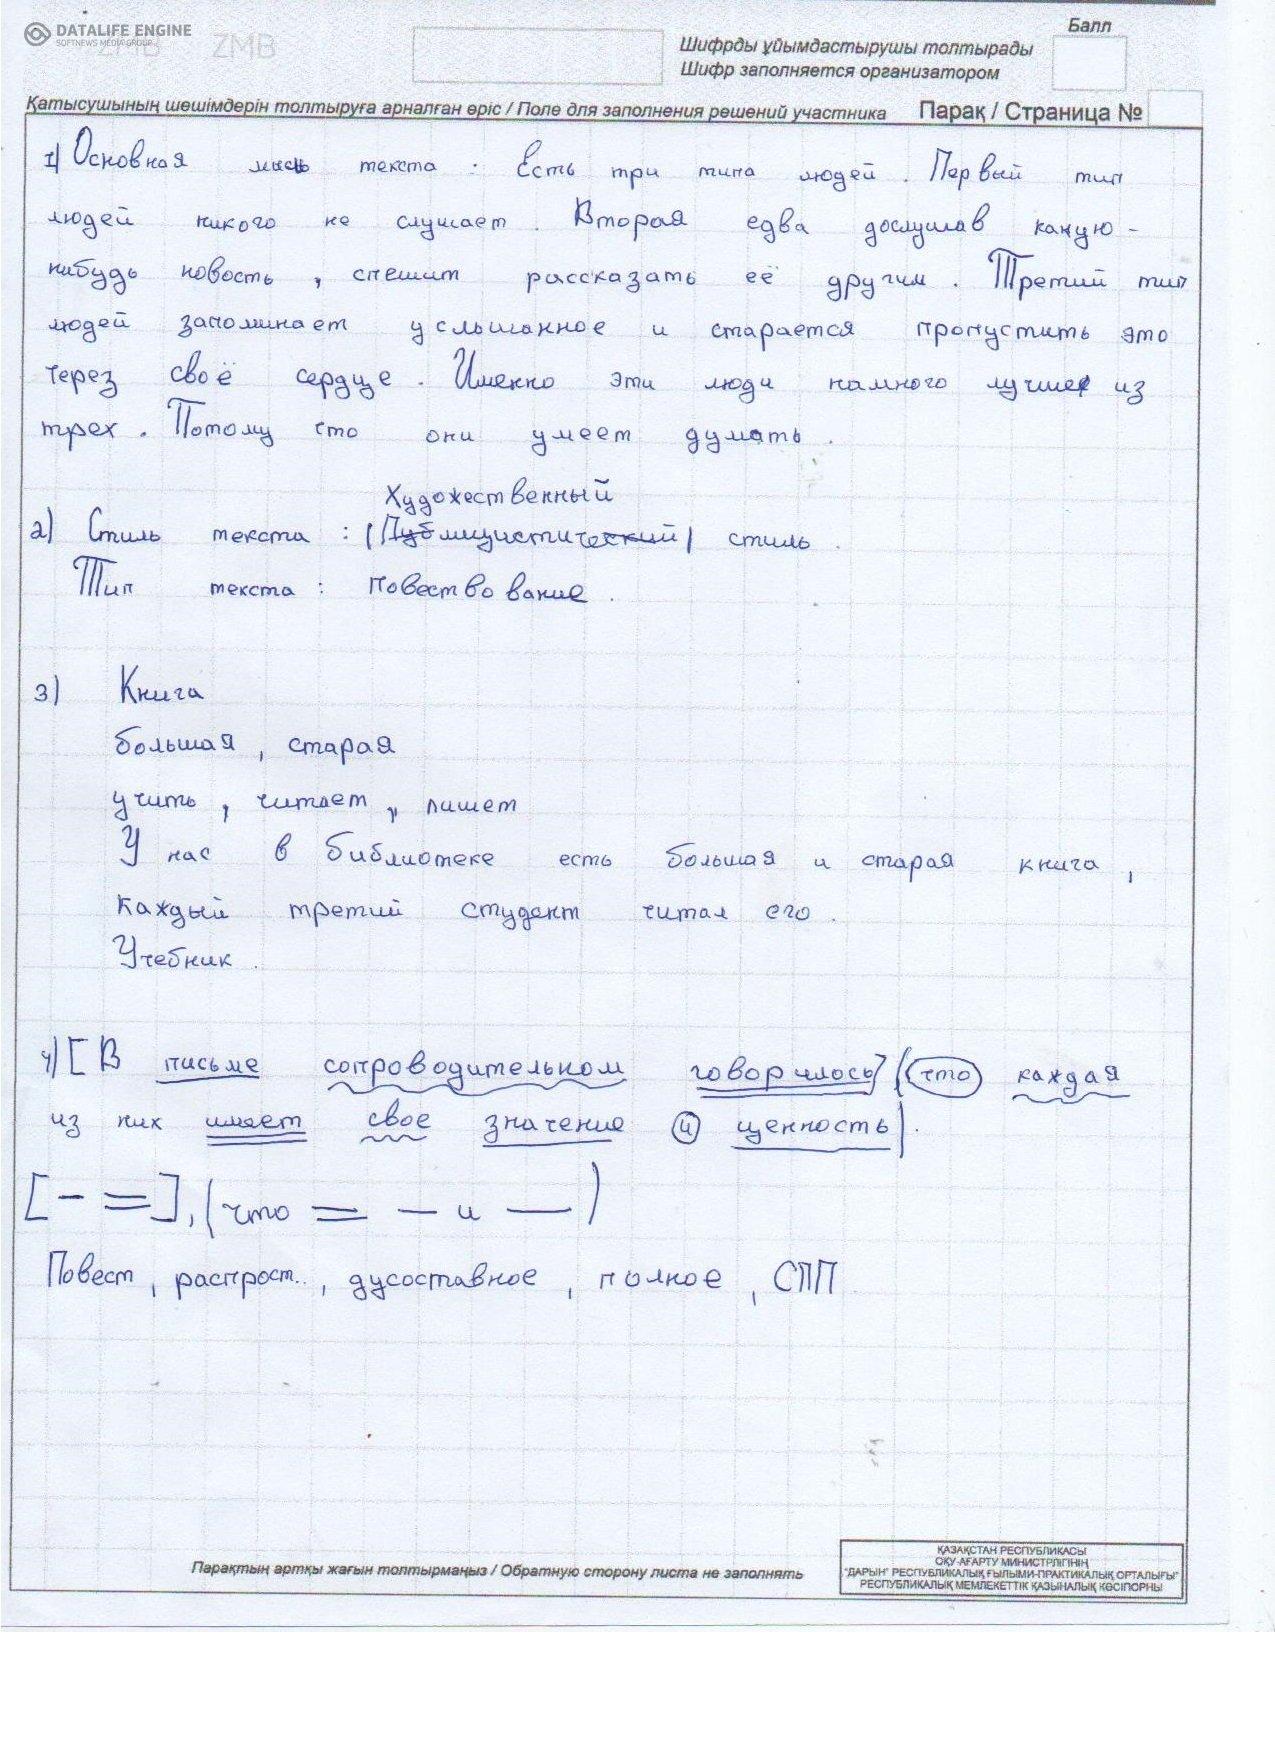 DATALIFE ENGINE
SOFTNEWS MEDIA GROUP
ZMB ZMB
Балл
Шифрды ұйымдастырушы толтырады
Шифр заполняется организатором
Қатысушының шешімдерін толтыруға арналған өріс / Поле для заполнения решений участника Парақ / Страница №
1) Основная мысль текста : Есть три типа людей . Первый тип
людей никого не слушает . Вторая едва дослушав какую-
нибудь новость , спешит рассказать её другим . Третий тип
людей запоминает услышанное и старается пропустить это
через своё сердце . Именно эти люди намного лучшее из
трех . Потому что они умеет думать .
Художественный
2) Стиль текста : (Публицистический) стиль .
Тип текста : повествование .
3) Книга
большая , старая
учить , читает , пишет
У нас в библиотеке есть большая и старая книга ,
каждый третий студент читал его .
Учебник .
4) [В письме сопроводительном говорилось] (что каждая
из них имеет свое значение и ценность).
[– =], (что = — и —)
Повест , распрост.. , дусоставное , полное , СПП
Парақтың артқы жағын толтырмаңыз / Обратную сторону листа не заполнять
ҚАЗАҚСТАН РЕСПУБЛИКАСЫ
ОҚУ-АҒАРТУ МИНИСТРЛІГІНІҢ
"ДАРЫН" РЕСПУБЛИКАЛЫҚ ҒЫЛЫМИ-ПРАКТИКАЛЫҚ ОРТАЛЫҒЫ"
РЕСПУБЛИКАЛЫҚ МЕМЛЕКЕТТІК ҚАЗЫНАЛЫҚ КӘСІПОРНЫ